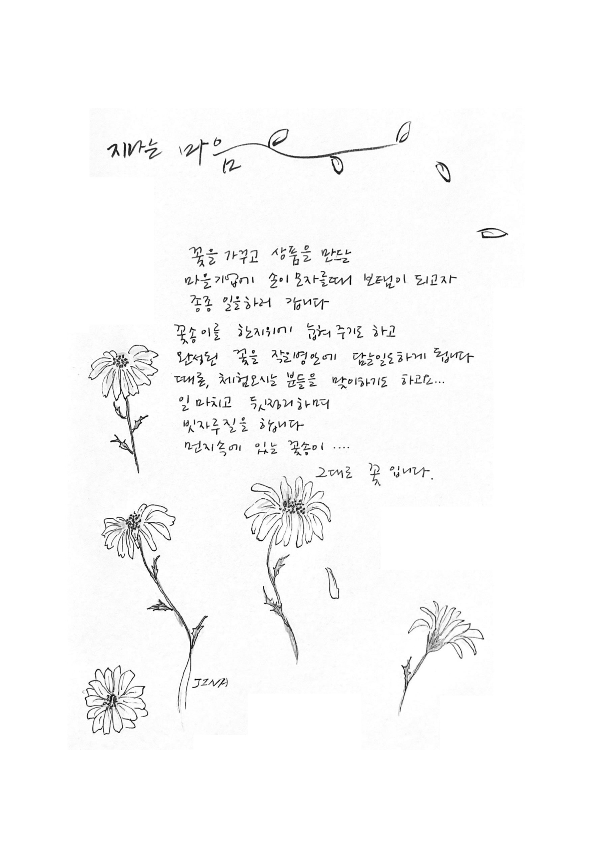 지나는 마음
꽃을 가꾸고 상품을 만드는
마을기업에 손이 모자를때 보탬이 되고자
종종 일을하러 갑니다
꽃송이를 한지위에 눕혀 주기도 하고
완성된 꽃을 작은병안에 담는일도하게 됩니다
때로, 체험오시는 분들을 맞이하기도 하고요...
일 마치고 뒷정리하며
빗자루질을 합니다
먼지속에 있는 꽃송이 ....
그대로 꽃 입니다.
JINA